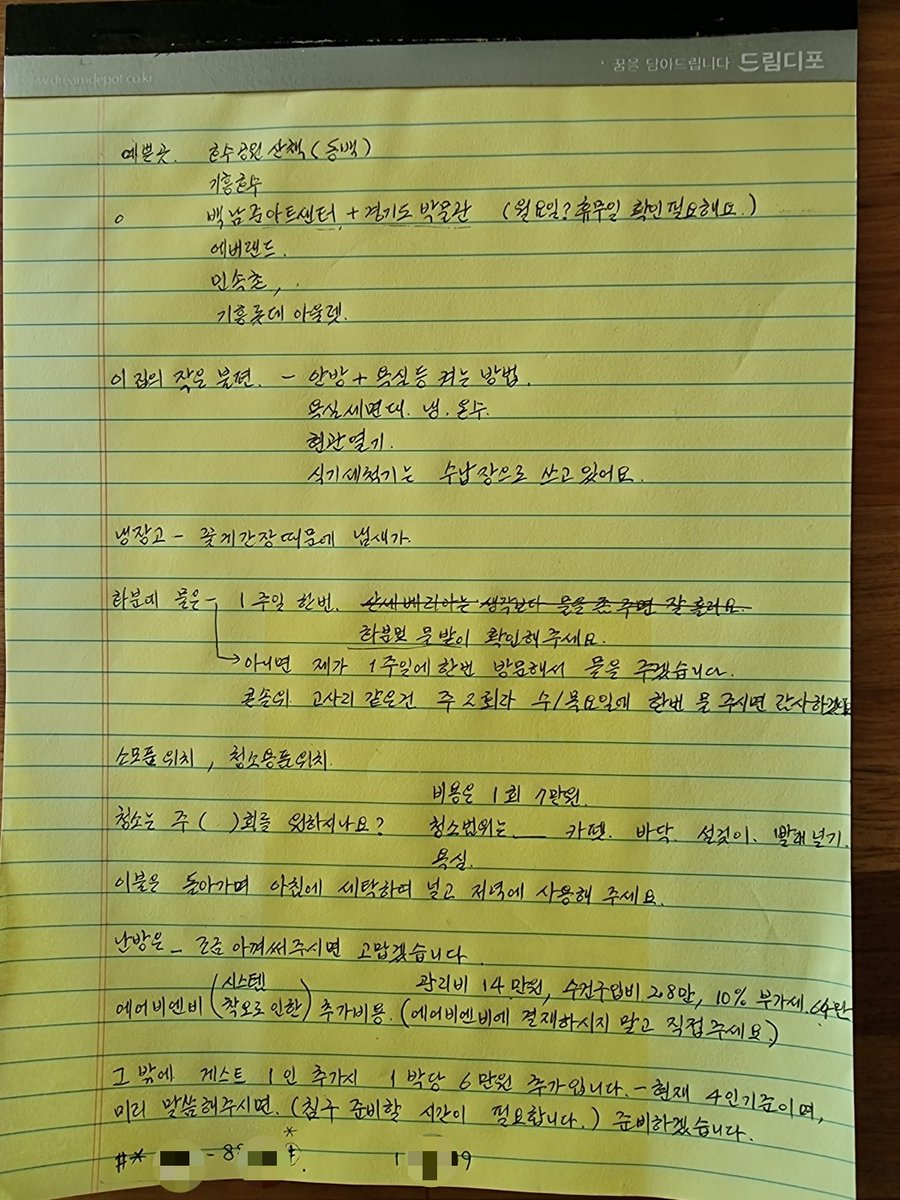 www.dreamdepot.co.kr
꿈을 담아드립니다 드림디포
예쁜곳. 호수공원 산책 (동백)
기흥호수
백남준아트센터 + 경기도 박물관 (월요일? 휴무일 확인필요해요.)
에버랜드.
민속촌,
기흥롯데 아울렛.
이 집의 작은 불편. - 안방 + 욕실등 켜는 방법.
욕실세면대. 냉. 온수.
현관열기.
식기세척기는 수납장으로 쓰고있어요.
냉장고 - 꽃게간장때문에 냄새가.
화분에 물은 - 1주일 한번. 산세베리아는 생각보다 물을 좀 주면 잘 올라요.
화분밑 물받이 확인해주세요.
→ 아니면 제가 1주일에 한번 방문해서 물을 주겠습니다.
콘솔위 고사리 같은건 주 2회라 수/목요일에 한번 물 주시면 감사하겠
소모품위치, 청소용품위치.
비용은 1회 7만원.
청소는 주 ( )회를 원하시나요? 청소범위는 __ 카펫. 바닥. 설겆이. 빨래널기.
욕실.
이불은 돌아가며 아침에 세탁하여 널고 저녁에 사용해 주세요.
난방은 _ 조금 아껴써주시면 고맙겠습니다.
관리비 14만원, 수건구입비 2.8만, 10% 부가세 64만
에어비엔비 (시스템 착오로인한) 추가비용. (에어비엔비에 결재하시지 말고 직접주세요.)
그 밖에 게스트 1인 추가시 1박당 6만원 추가입니다. - 현재 4인기준이며,
미리 말씀해주시면. (침구 준비할 시간이 필요합니다.) 준비하겠습니다.